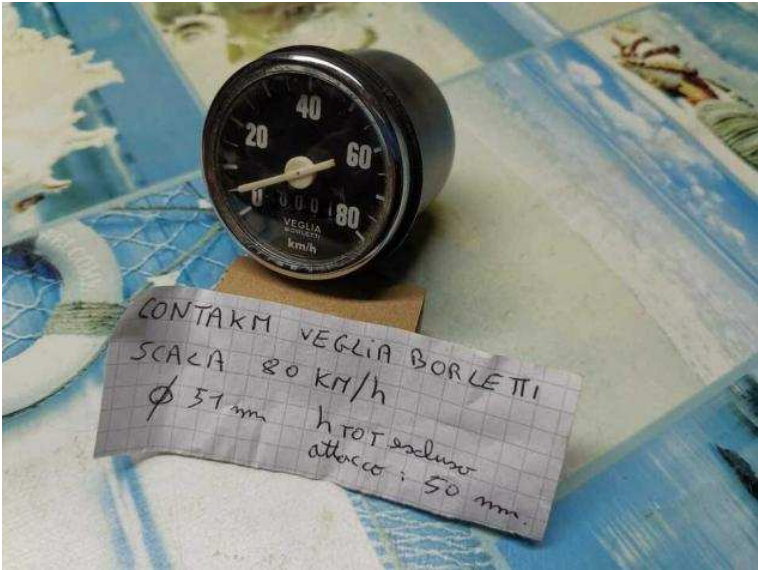 40
20
60
0
80
VEGLIA
BORLETTI
km/h
CONTAKM VEGLIA BORLETTI
SCALA 80 KM/h
Ø 51 mm h TOT escluso
attacco : 50 mm.